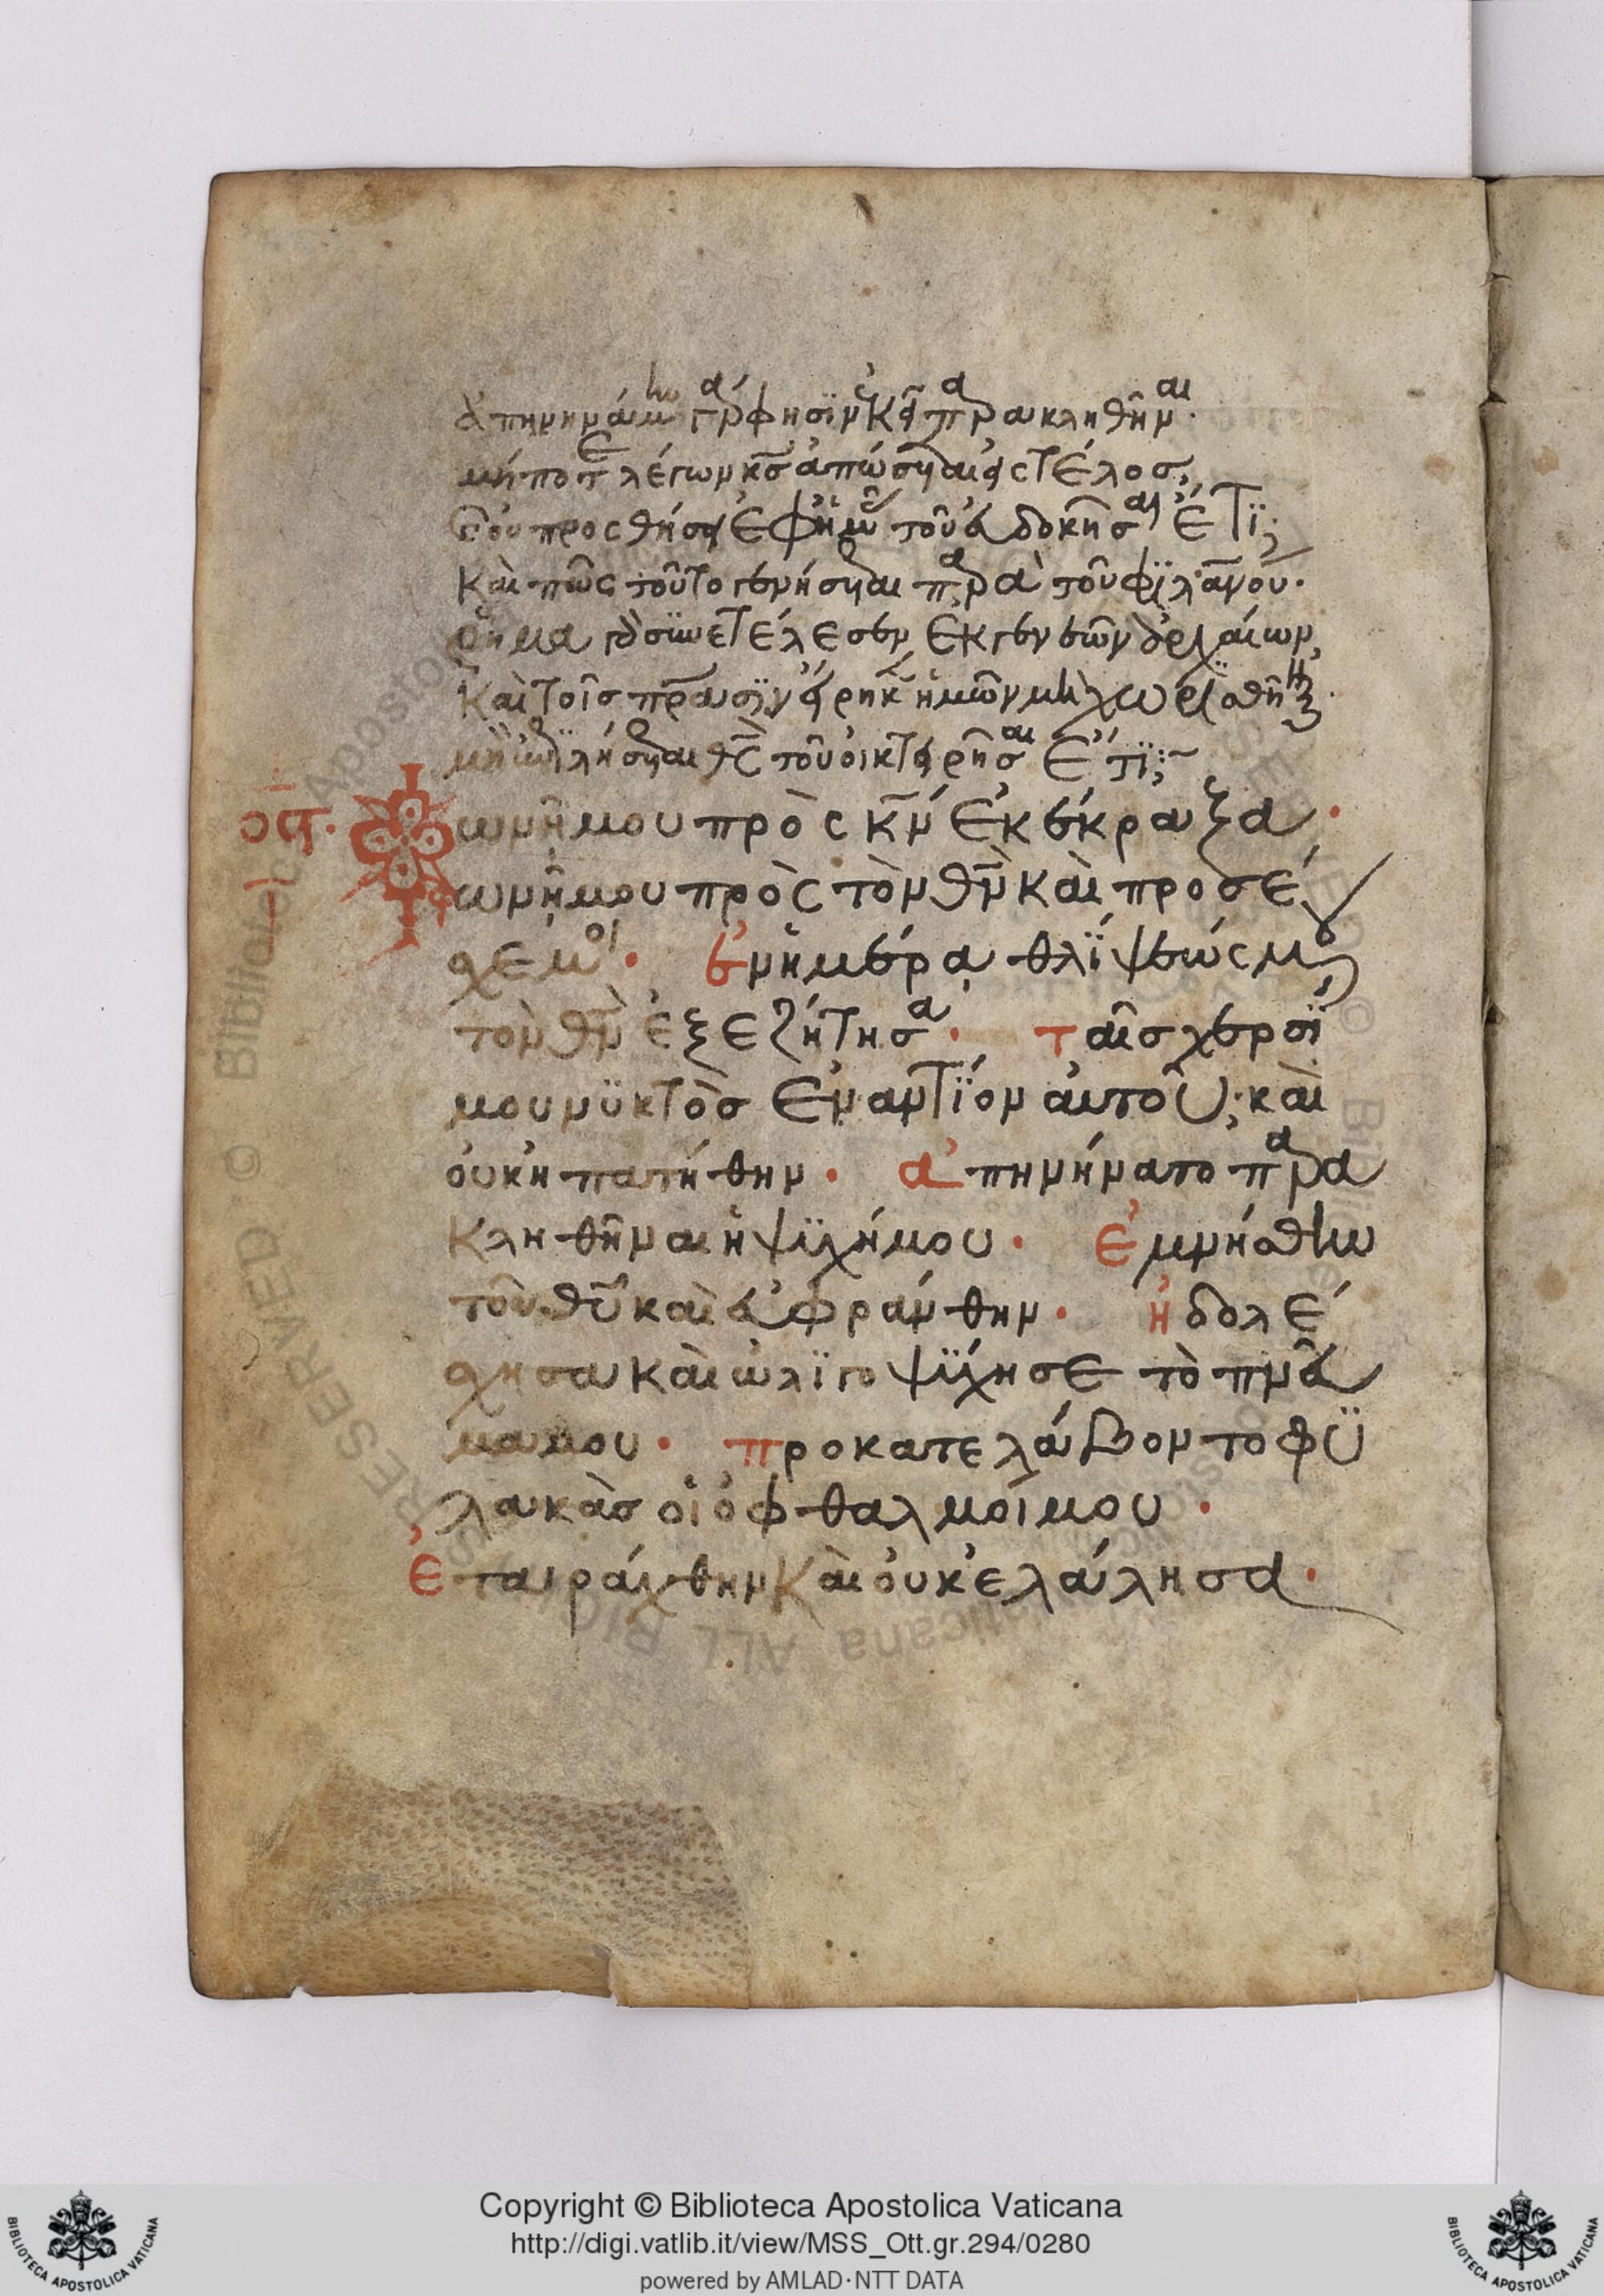 ἀπηνηνάμην γράφησϊν κ παρακληθῆναι·
μήποτε λέγων κς ἀπώσηται εἰς τέλος,
καὶ οὐ προσθήσει ἐφ ἡμῖν τοῦ εὐδοκῆσαι ἔτϊ;
Καὶ πῶς τοῦτο γενήσηται παρὰ τοῦ φϊλανου·
ῥῆμα
Καὶ τοῖς
τοῦ οἰκτειρῆσαι ἔτϊ;
ος· φωνῆ μου πρὸς κν ἐκέκραξα·
φωνῆ μου πρὸς τὸν θν καὶ προσέ
σχε μοι· ἐν ἡμέρα θλΐψεώς μου
τὸν θν ἐξεζήτησα· ταῖς χερσΐ
μου νϋκτὸς ἐναντΐον αὐτοῦ· καὶ
οὐκ ηπατήθην· ἀπηνήνατο παρα
κληθῆναι ἡ ψϊχή μου· ἐμνήσθην
τοῦ θυ καὶ εὐφράνθην· ἠδολέ
σχησα καὶ ὠλϊγοψΐχησε τὸ πνεῦ
μα μου· προκατελάβοντο φϋ
λακὰς οἱ ὀφθαλμοί μου·
ἐταιράχθην καὶ οὐκ ἐλάλησα·
Copyright © Biblioteca Apostolica Vaticana
http://digi.vatlib.it/view/MSS_Ott.gr.294/0280
powered by AMLAD·NTT DATA
BIBLIOTECA APOSTOLICA VATICANA
BIBLIOTECA APOSTOLICA VATICANA